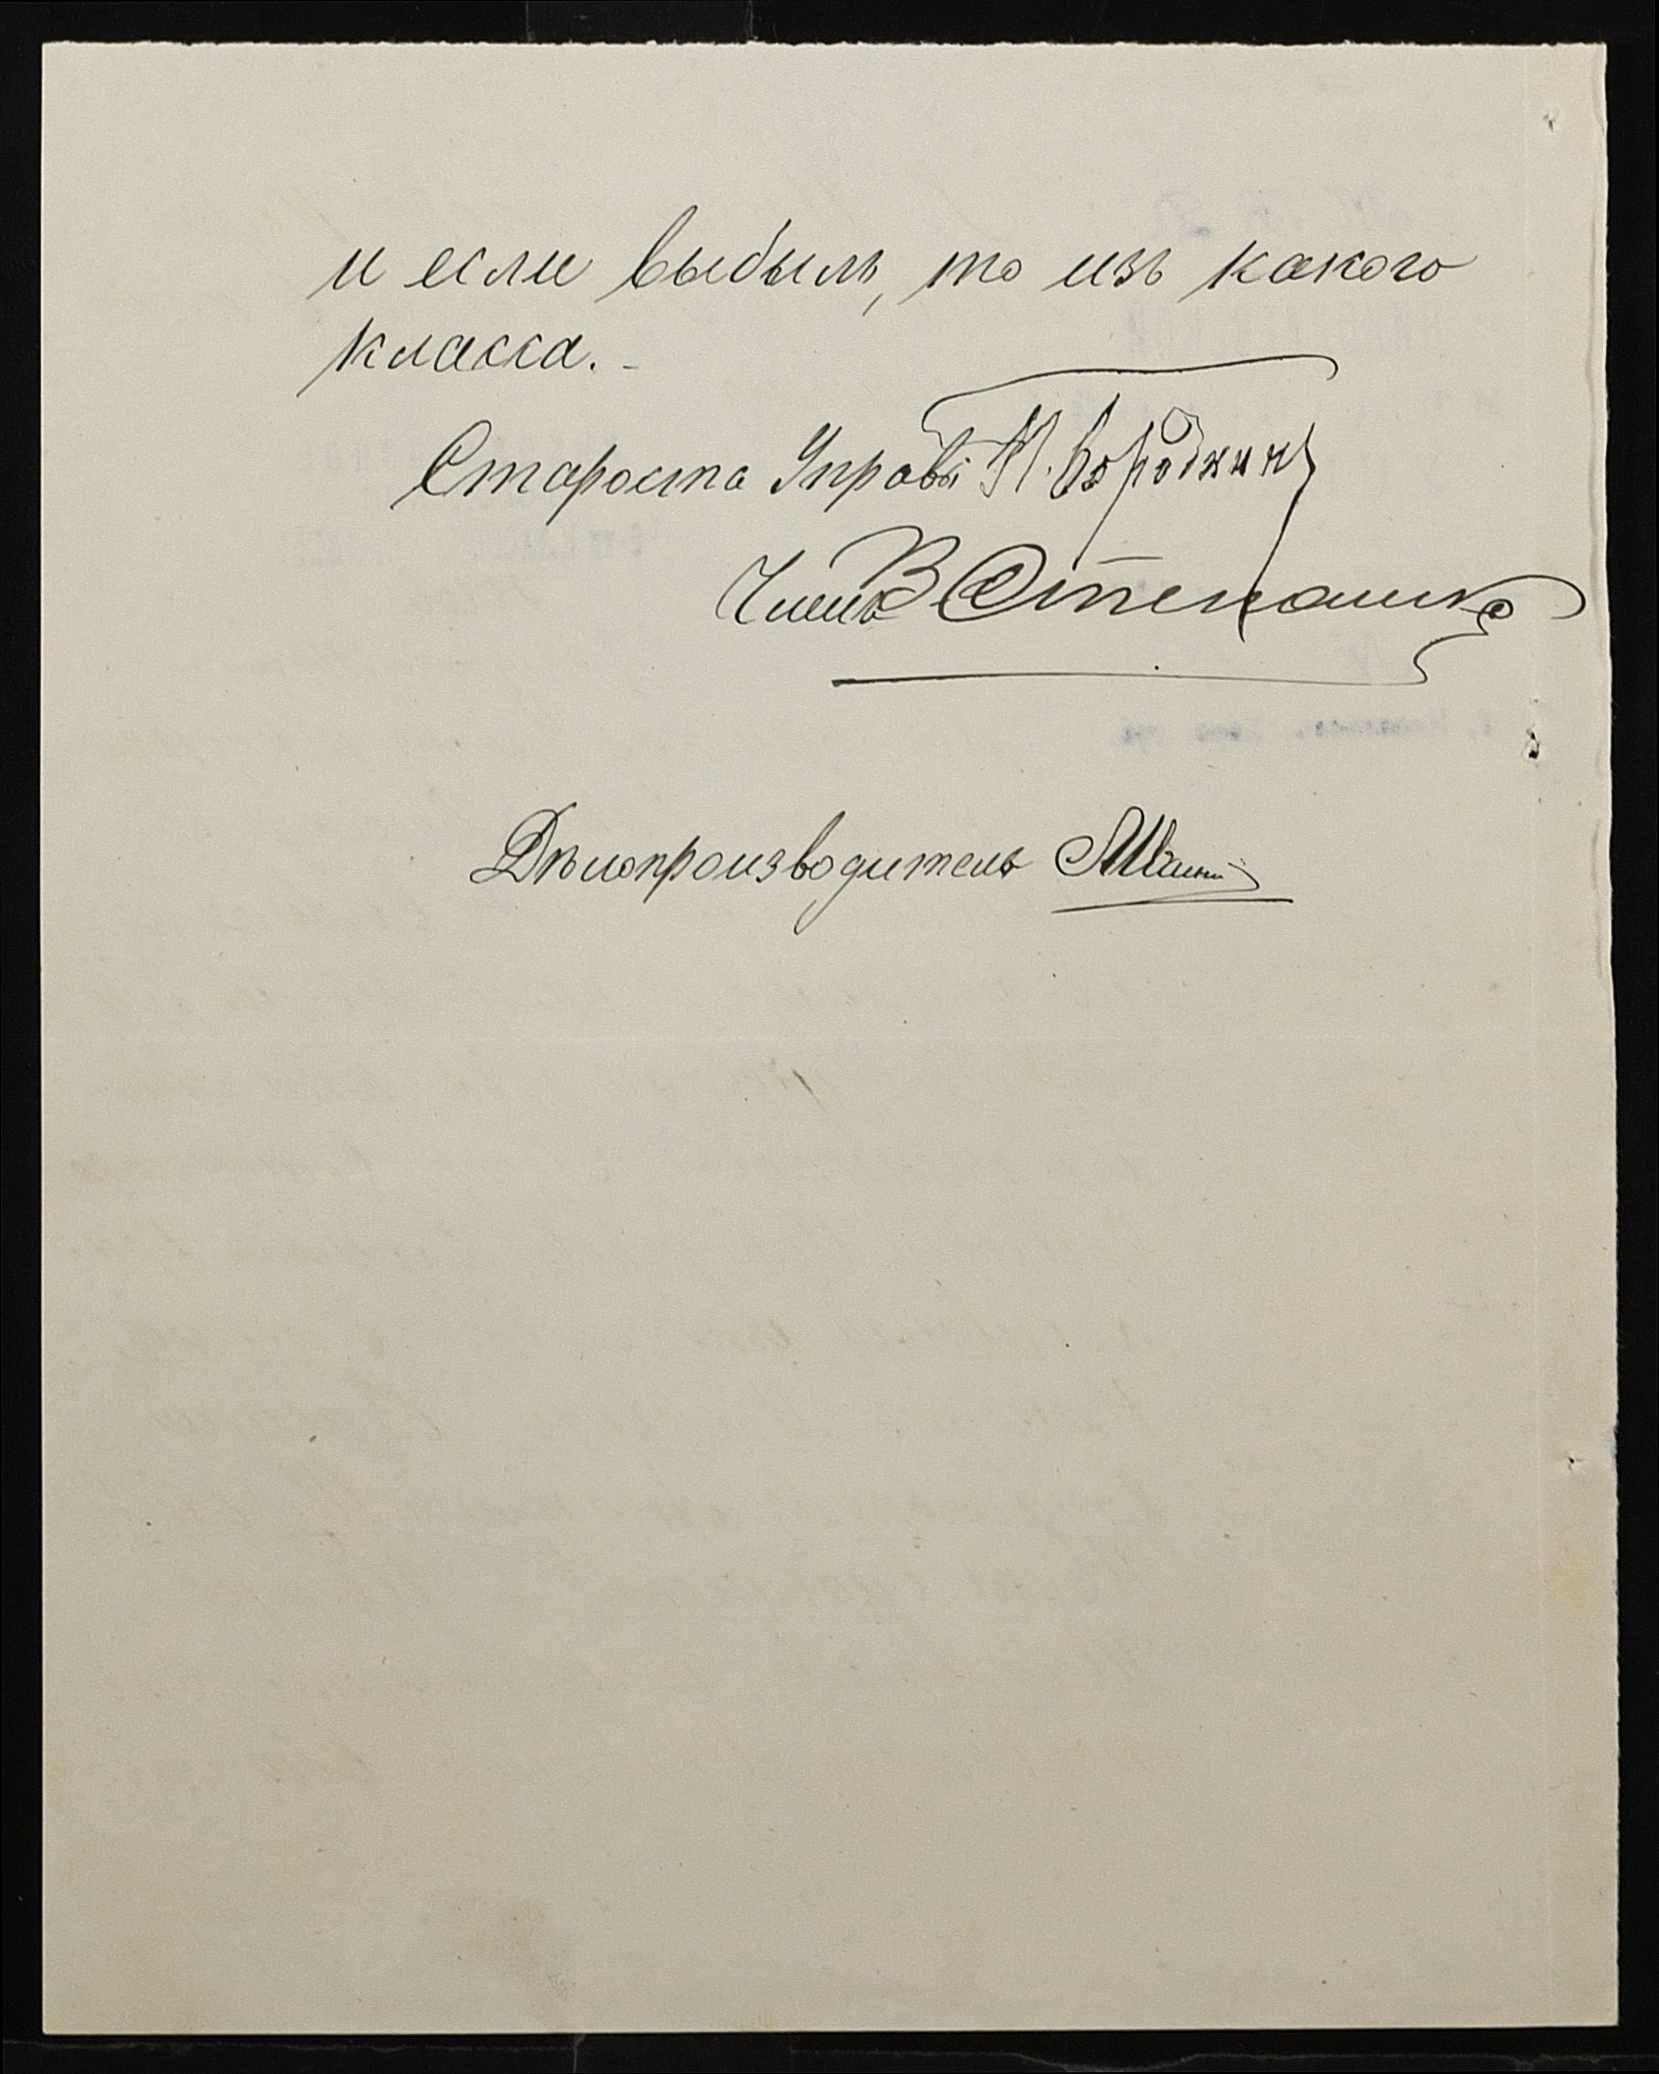 и если выбылъ, то изъ какого
класса.-
Староста Управы П. Бородкинъ
Членъ В Степашко
Дѣлопроизводитель